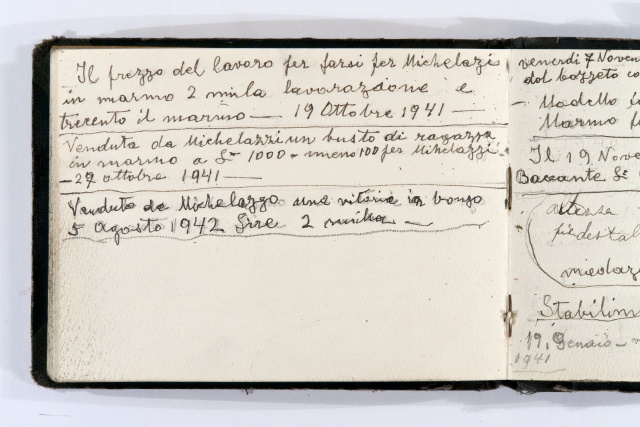 Il prezzo del lavoro per farsi per Michelazi
in marmo 2 mila lavorazione e
trecento il marmo — 19 Ottobre 1941 —
Venduta da Michelazzi un busto di ragazza
in marmo a £ 1000 - meno 100 per Mihelazzi
- 27 ottobre 1941 —
Venduto da Michelazzo una vitoria in bonzo
5 Agosto 1942 Lire 2 milla —
venerdi 7 Noven
dal bozzeto co
- Modello in
Marmo f
Il 19 Nove
Baccante
altessa
piedestal
miolaz
Stabilim
19, Genaio -
1941